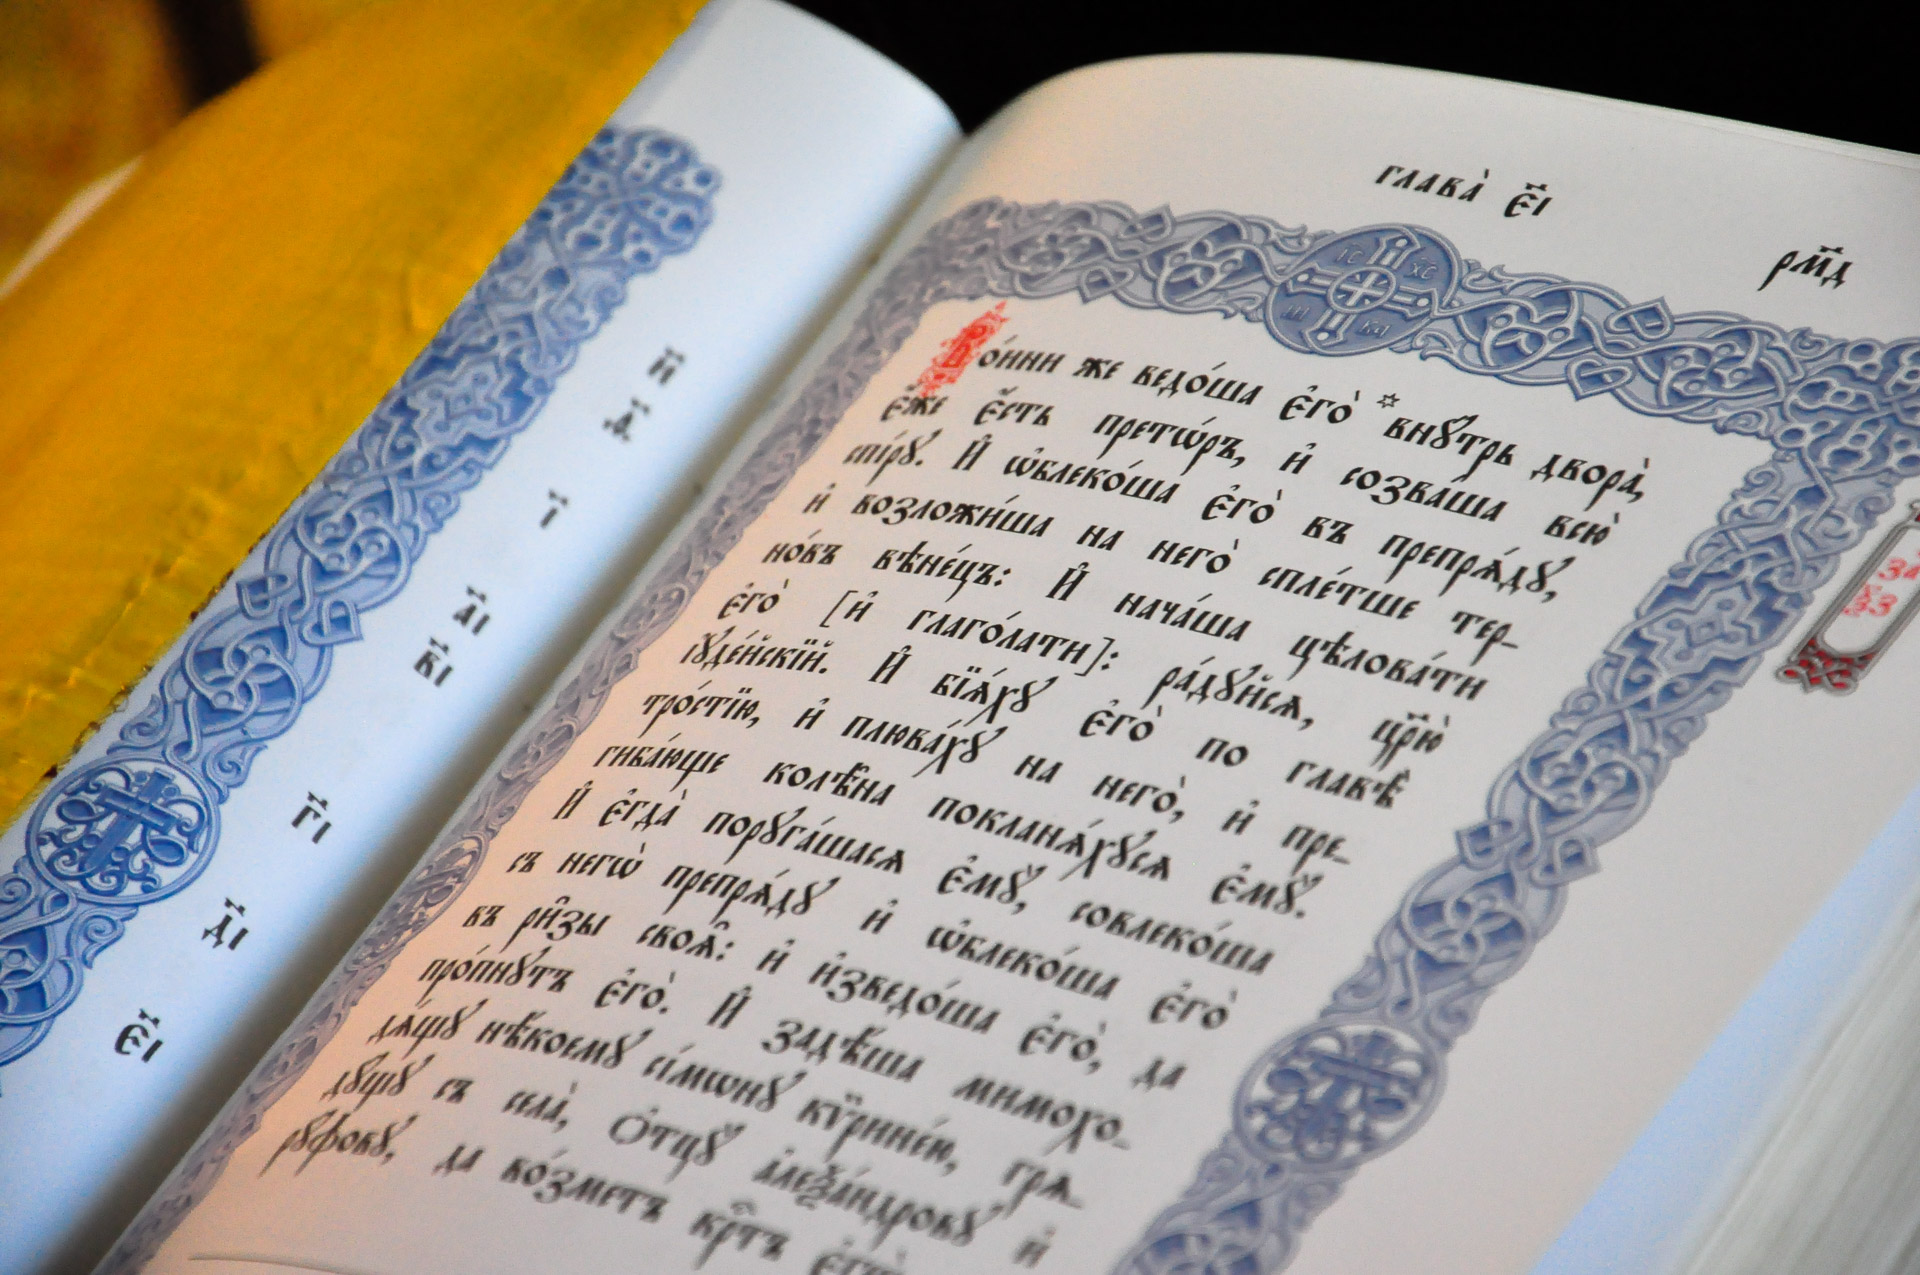 н҃
ѳ҃
і҃
а҃і
в҃і
г҃і
д҃і
є҃і
глава̀ є҃і
рм҃д
Во́ини же ведо́ша є҆го̀ * внꙋ́трь двора̀,
є҆́же є҆́сть претѡ́ръ, и҆ созва́ша всю̀
спі́рꙋ. И҆ ѡ҆блеко́ша є҆го̀ въ препрѧ́дꙋ,
и҆ возложи́ша на него̀ спле́тше тер-
но́въ вѣне́цъ: И҆ нача́ша цѣлова́ти
є҆го̀ [и҆ глаго́лати]: ра́дꙋйсѧ, цр҃ю̀
і҆ꙋде́йскїй. И҆ бїѧ́хꙋ є҆го̀ по главѣ̀
тро́стїю, и҆ плюва́хꙋ на него̀, и҆ пре-
гиба́юще кѡлѣ̑на покланѧ́хꙋсѧ є҆мꙋ̀.
И҆ є҆гда̀ порꙋга́шасѧ є҆мꙋ̀, совлеко́ша
съ негѡ̀ препрѧ́дꙋ и҆ ѡ҆блеко́ша є҆го̀
въ ри̑зы своѧ̑: и҆ и҆зведо́ша є҆го̀, да
про́пнꙋтъ є҆го̀. И҆ задѣ́ша мимохо-
дѧ́щꙋ нѣ́коемꙋ сі́мѡнꙋ кѷрине́ю, грѧ-
дꙋ́щꙋ съ села̀, ѻ҆тцꙋ̀ а҆леѯа́ндровꙋ и҆
рꙋ́фовꙋ, да во́зметъ крⷭ҇тъ є҆гѡ̀
І҃С Х҃С
НИ КА
за҄